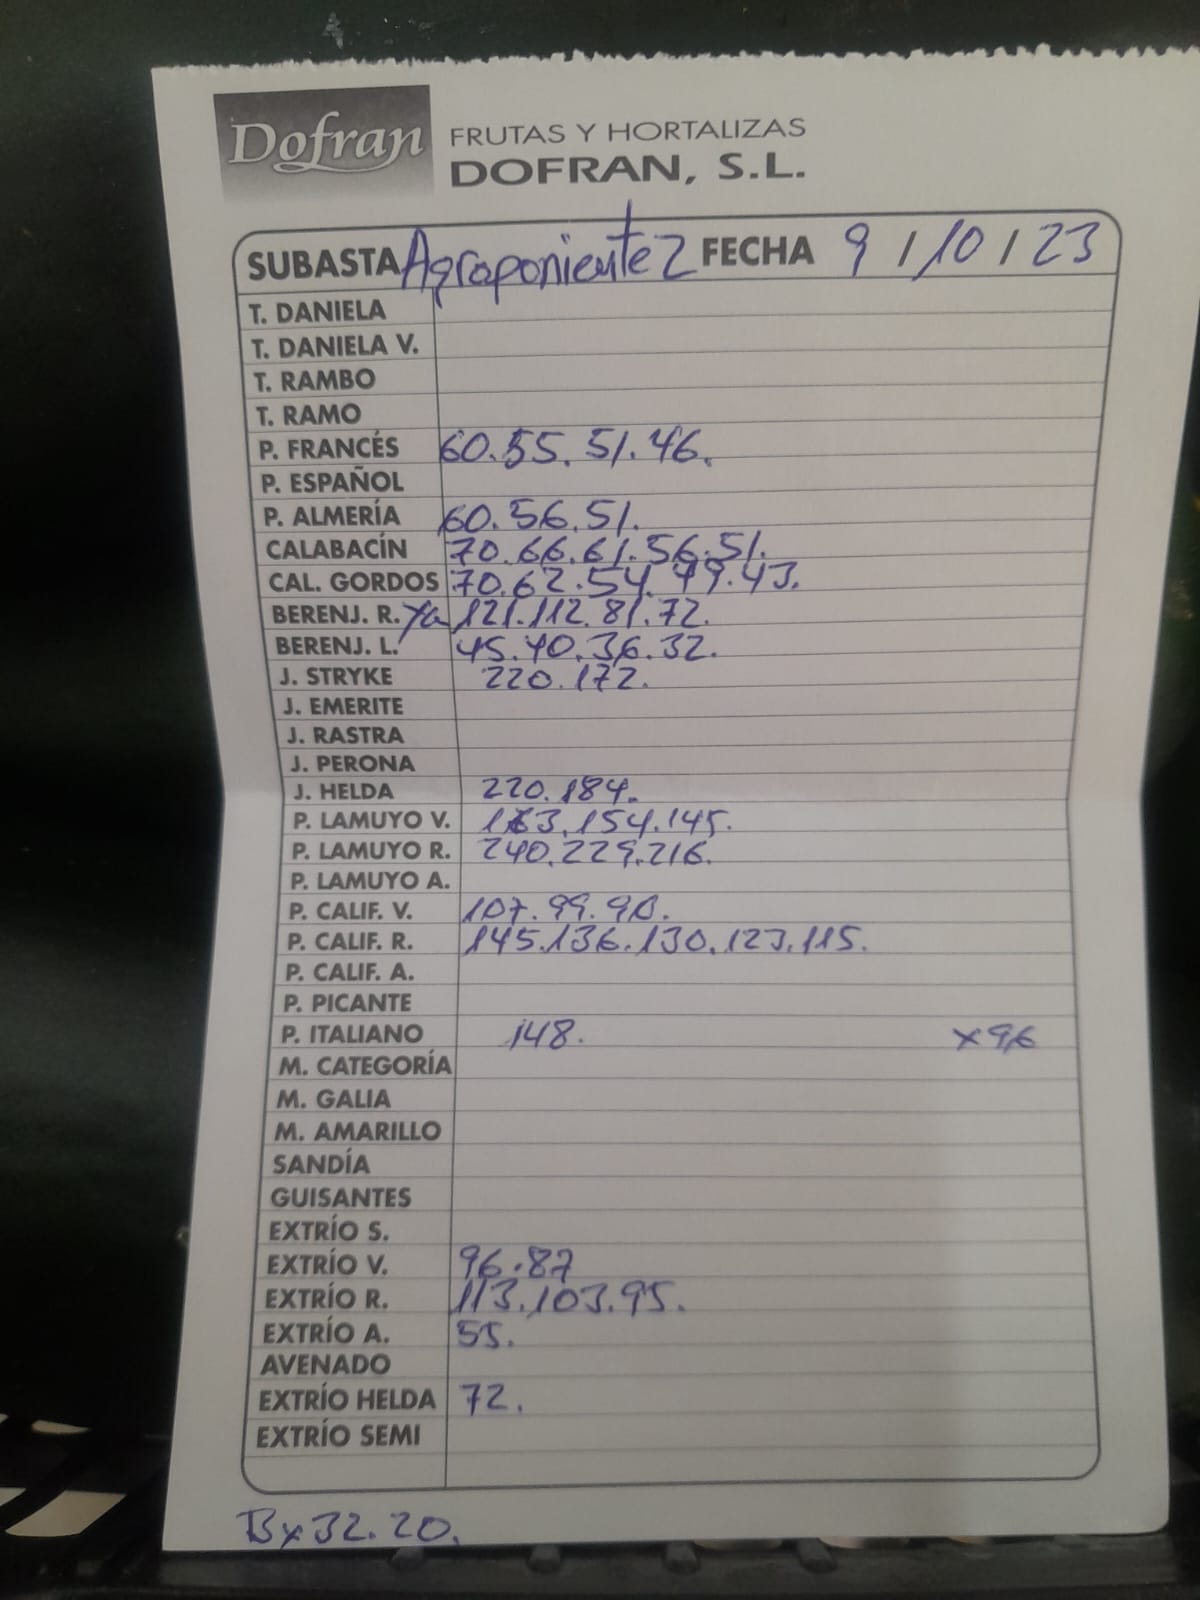 Dofran FRUTAS Y HORTALIZAS
DOFRAN, S.L.
SUBASTA Agroponiente 2 FECHA 9 / 10 / 23
T. DANIELA
T. DANIELA V.
T. RAMBO
T. RAMO
P. FRANCÉS 60.55.51.46.
P. ESPAÑOL
P. ALMERÍA 60.56.51.
CALABACÍN 70.66.61.56.51.
CAL. GORDOS 70.62.54.49.43.
BERENJ. R. Ya 121.112.81.72.
BERENJ. L. 45.40.36.32.
J. STRYKE 220.172.
J. EMERITE
J. RASTRA
J. PERONA
J. HELDA 220.184.
P. LAMUYO V. 163.154.145.
P. LAMUYO R. 240.229.216.
P. LAMUYO A.
P. CALIF. V. 107.99.90.
P. CALIF. R. 145.136.130.123.115.
P. CALIF. A.
P. PICANTE
P. ITALIANO 148. x96
M. CATEGORÍA
M. GALIA
M. AMARILLO
SANDÍA
GUISANTES
EXTRÍO S.
EXTRÍO V. 96.87
EXTRÍO R. 113.103.95.
EXTRÍO A. 55.
AVENADO
EXTRÍO HELDA 72.
EXTRÍO SEMI
Bx32.20.